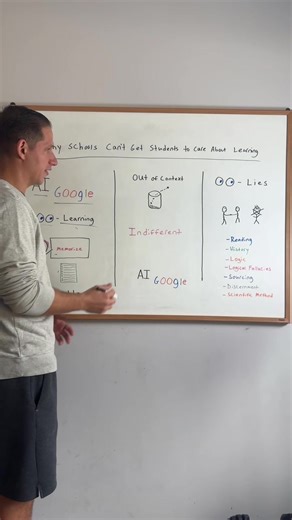 hy Schools Can't Get Students to Care About Learning
AI GOOGLE
- Learning
Memorize
Out of Context
Indifferent
AI GOOGLE
- Lies
- Reading
- History
- Logic
- Logical Fallacies
- Sourcing
- Discernment
- Scientific Method